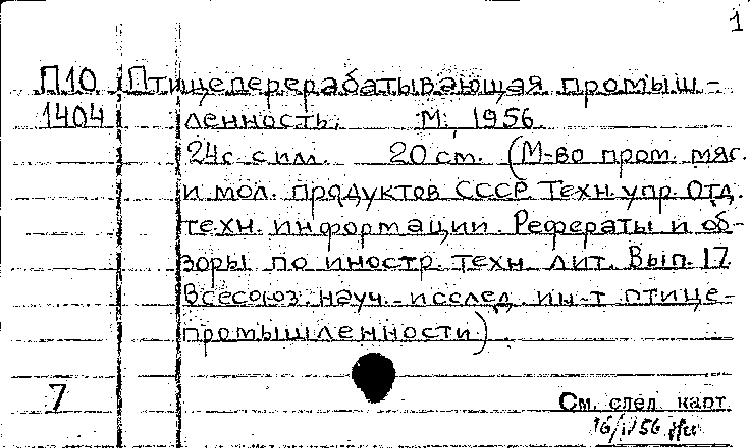 1
П10 Птицеперерабатывающая промыш-
1404 ленность. М., 1956.
24с. с илл. 20 см. (М-во пром. мяс.
и мол. продуктов СССР. Техн. упр. Отд.
техн. информации. Рефераты и об-
зоры по иностр. техн. лит. Вып. 17.
Всесоюз. науч.-исслед. ин-т птице-
промышленности).
7
См. след. карт.